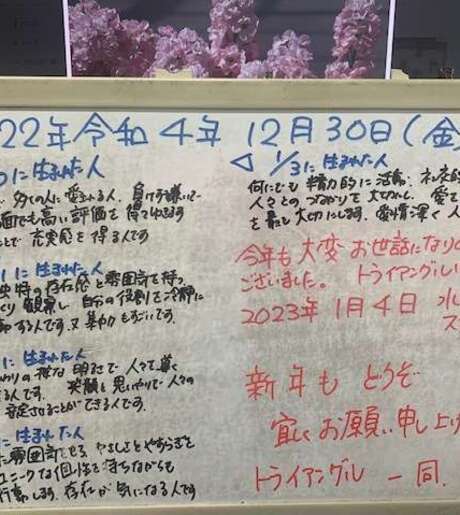 22年令和4年 12月30日(金
に生まれた人
多くの人に愛される人。負けず嫌いで
面でも高い評価を得て
ことで充実感を得る人です
に生まれた人
独特の存在感と雰囲気を持つ
観察し 自分の役割を冷静に
する人です。又集中力もすごいです。
に生まれた人
明るさで 人々を導く
人です。 笑顔と思いやりで人々の
安定させることができる人です。
に生まれた人
雰囲気をもち やさしさとやすらぎを
ユニークな個性を持ちながらも
行動します。存在が気になる人です
◁ 1/3に生まれた人
何にでも精力的に活動。
人々とのつながりを大切にし、愛
を最も大切にします。愛情深く人
今年も大変お世話になり
ございました。 トライアングル
2023年1月4日 水
ス
新年もどうぞ
宜しくお願い申し上げ
トライアングル 一同.